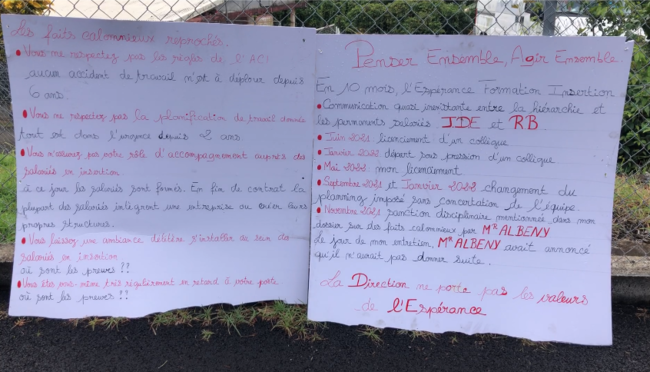 Les faits calomnieux reprochés.
• Vous ne respectez pas la règle de l'ACI
aucun accident de travail n'est à déplorer depuis
6 ans.
• Vous ne respectez pas la planification de travail donnée
tout est dans l'urgence depuis 2 ans
• Vous n'assurez pas votre rôle d'accompagnement auprès des
salariés en insertion
à ce jour les salariés sont formés. En fin de contrat la
plupart des salariés intègrent une entreprise ou créer leurs
propres structures.
• Vous laissez une ambiance délétère s'installer au sein des
salariés en insertion
où sont les preuves ??
• Vous êtes vous-même très régulièrement en retard à votre poste
où sont les preuves !!
Penser Ensemble, Agir Ensemble
En 10 mois, l'Espérance Formation Insertion
• Communication quasi inexistante entre la hiérarchie et
les permanents salariés IDE et RB
• Juin 2021 licenciement d'un collègue
• Janvier 2022 départ sous pression d'un collègue
• Mai 2022 mon licenciement
• Septembre 2021 et Janvier 2022 changement du
planning imposé sans concertation de l'équipe
• Novembre 2021 sanction disciplinaire mentionnée dans mon
dossier sur des faits calomnieux par Mr ALBENY
Le jour de mon entretien, Mr ALBENY avait annoncé
qu'il n'avait pas donner suite.
La Direction ne porte pas les valeurs
de l'Espérance